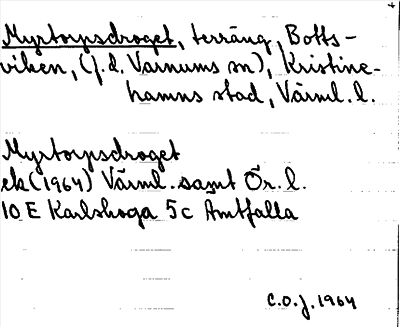 Myrtorpsdroget, terräng, Botts-
viken, (f.d. Varnums sn), Kristine-
hamns stad, Värml. l.
Myrtorpsdroget
ek (1964) Värml. samt Ör. l.
10 E Karlskoga 5c Amtfalla
C.O.J. 1964